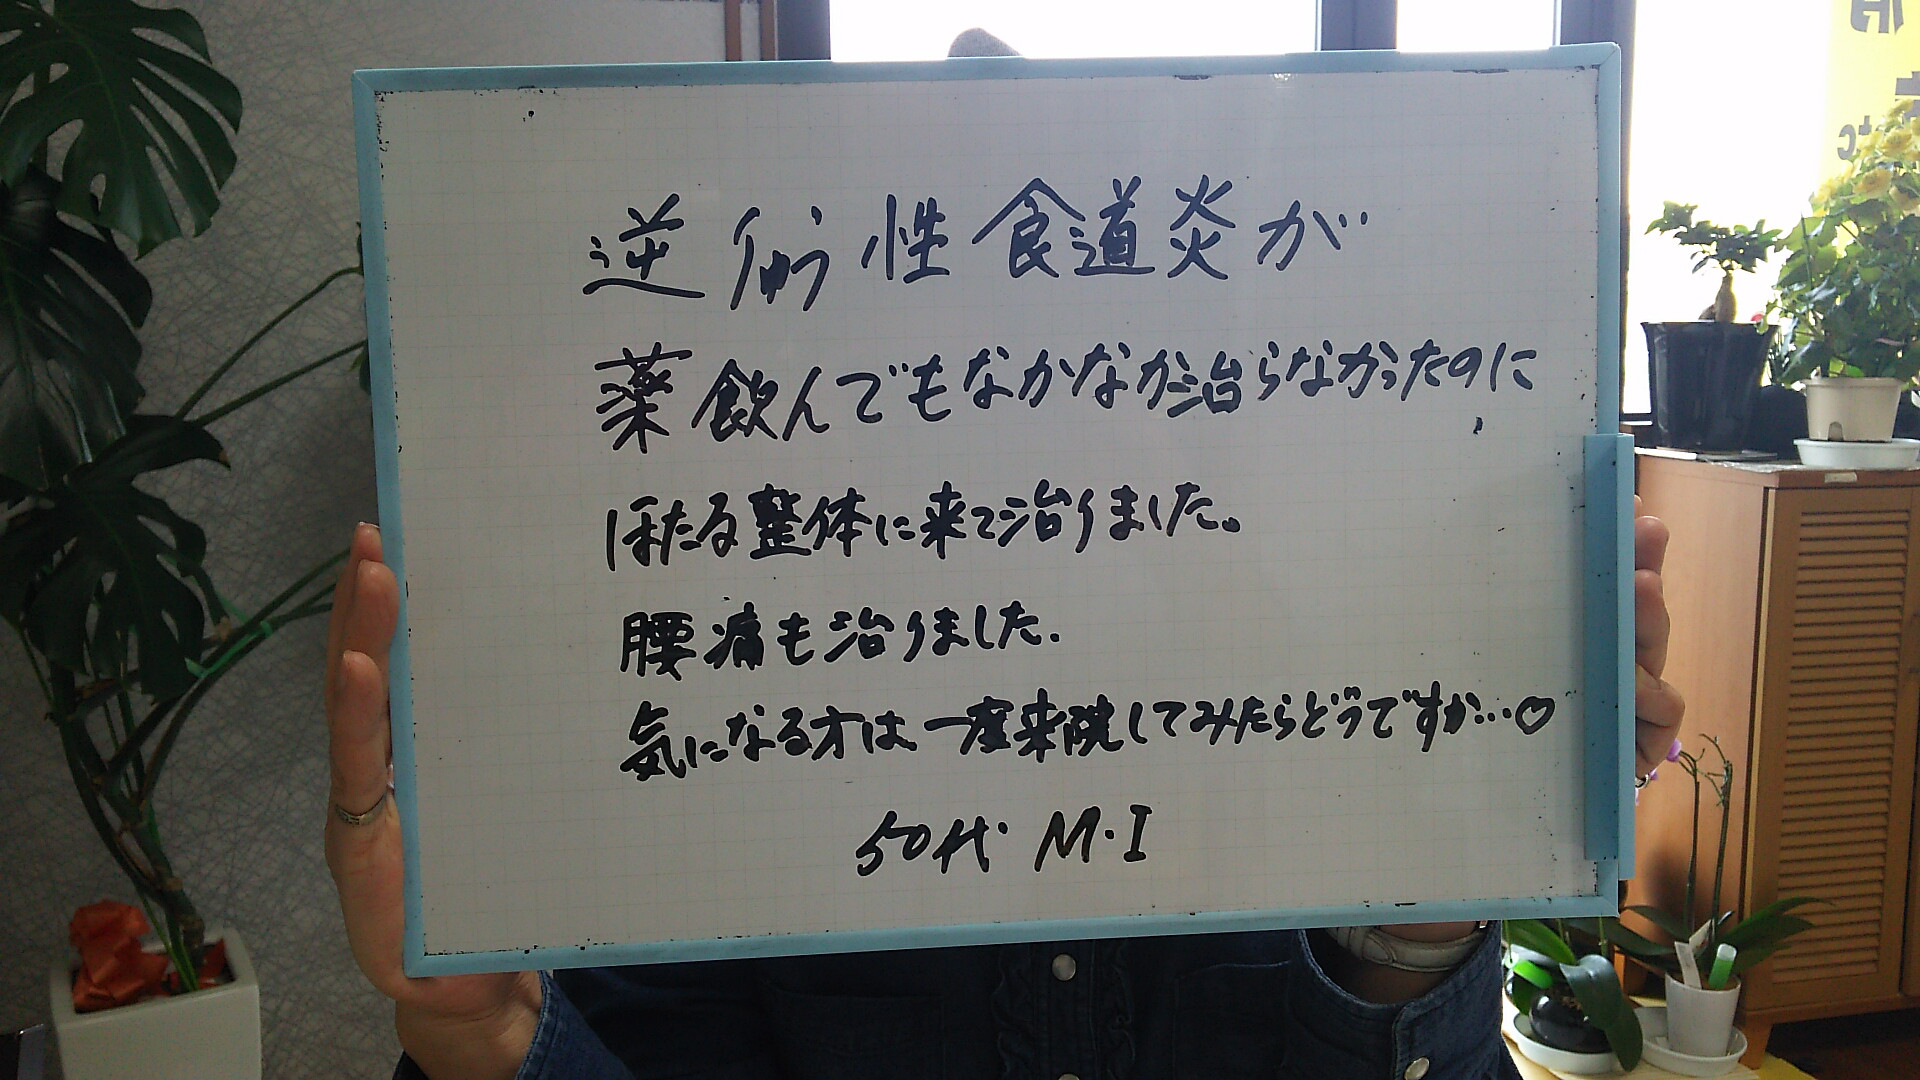 逆流性食道炎が
薬飲んでもなかなか治らなかったのに、
ほたる整体に来て治りました。
腰痛も治りました.
気になる方は一度来院してみたらどうですか…♡
50代 M・I
etc